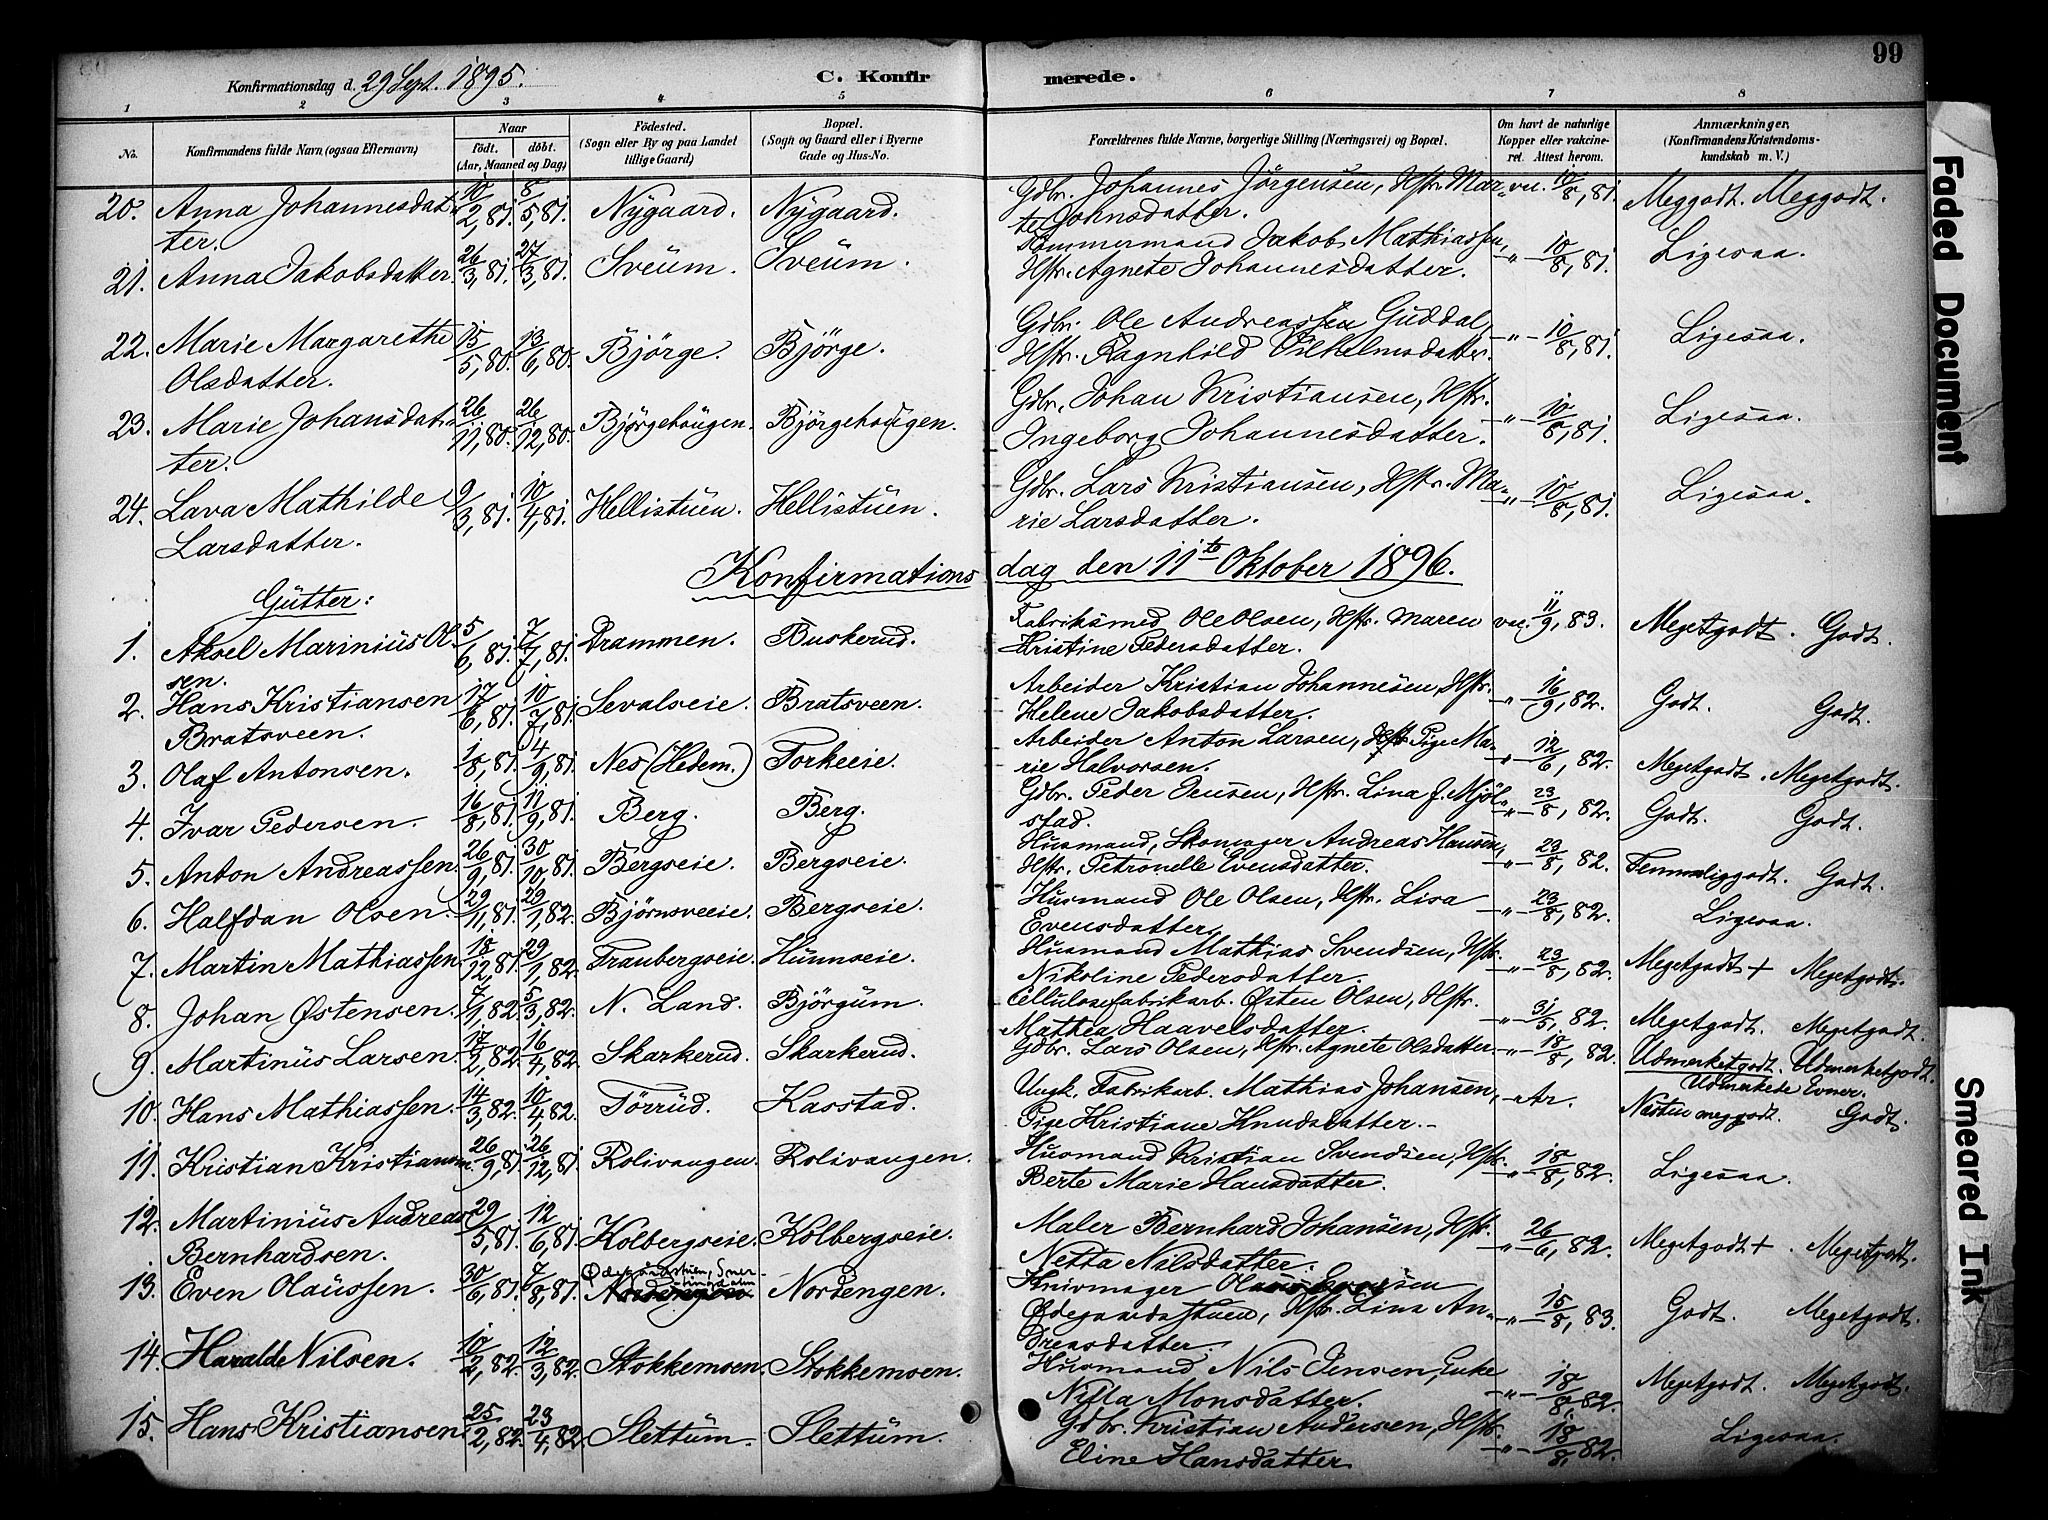 99
Konfirmationsdag d. 29 Sept. 1895.
C. Konfirmerede.
1 2 3 4 5 6 7 8
No. Konfirmandens fulde Navn (ogsaa Efternavn) Naar født. døbt. (Aar, Maaned og Dag) Fødested. (Sogn eller By og paa Landet tillige Gaard) Bopæl. (Sogn og Gaard eller i Byerne Gade og Hus-No. Forældrenes fulde Navne, borgerlige Stilling (Næringsvei) og Bopæl. Om havt de naturlige Kopper eller vaccineret. Attest herom. Anmærkninger, (Konfirmandens Kristendomskundskab m. V.)
20. Anna Johannesdatter. 10/2,81. 8/5,81. Nygaard. Nygaard. Gdbr. Johannes Jörgensen, Hstr. Marte Johnsdatter. vn. 10/8,81. Meggodt. Meggodt.
21. Anna Jakobsdatter. 26/3,81. 27/3,81. Sveum. Sveum. Tömmermand Jakob Mathiassen, Hstr. Agnete Johannesdatter. -"- 10/8,81. Ligesaa.
22. Marie Margarethe Olsdatter. 15/5,80. 13/6,80. Björge. Björge. Gdbr. Ole Andreassen Guddal, Hstr. Ragnhild Vilhelmsdatter. -"- 10/8,81. Ligesaa.
23. Marie Johansdatter. 26/11,80. 26/12,80. Björgehaugen. Björgehaugen. Gdbr. Johan Kristiansen, Hstr. Ingeborg Johannesdatter. -"- 10/8,81. Ligesaa.
24. Lava Mathilde Larsdatter. 9/3,81. 10/4,81. Hellistuen. Hellistuen. Gdbr. Lars Kristiansen, Hstr. Marie Larsdatter. -"- 10/8,81. Ligesaa.
Konfirmationsdag den 11te Oktober 1896.
Gutter:
1. Aksel Marinius Olsen. 5/6,81. 7/7,81. Drammen. Buskerud. Fabriksmed Ole Olsen, Hstr. Maren Kristine Pedersdatter. vn. 11/9,83. Megetgodt. Godt.
2. Hans Kristiansen Bratsveen. 17/6,81. 10/7,81. Sevalseie. Bratsveen. Arbeider Kristian Johannesen, Hstr. Helene Jakobsdatter. -"- 16/9,82. Godt. Godt.
3. Olaf Antonsen. 1/8,81. 4/9,81. Nes (Hedem.) Torkeeie. Arbeider Anton Larsen, Pige Marie Halvorsen. -"- 12/6,82. Megetgodt. Megetgodt.
4. Ivar Pedersen. 16/8,81. 11/9,81. Berg. Berg. Gdbr. Peder Jensen, Hstr. Lina f. Mjölstad. -"- 23/8,82. Godt. Godt.
5. Anton Andreassen. 26/9,81. 30/10,81. Bergseie. Bergseie. Husmand, Skomager Andreas Hansen, Hstr. Petronelle Evensdatter. -"- 23/8,82. Temmeliggodt. Godt.
6. Halfdan Olsen. 29/11,81. 29/1,82. Björnsveeie. Bergseie. Husmand Ole Olsen, Hstr. Lisa Evensdatter. -"- 23/8,82. Ligesaa.
7. Martin Mathiassen. 18/12,81. 29/1,82. Traubergseie. Hunnseie. Husmand Mathias Svendsen, Hstr. Nikoline Pedersdatter. -"- 23/8,82. Megetgodt + Megetgodt.
8. Johan Østensen. 7/1,82. 5/3,82. N. Land. Björgum. Cellulosefabrikarb. Østen Olsen, Hstr. Mathea Haavelsdatter. -"- 31/5,82. Megetgodt. Megetgodt.
9. Martinus Larsen. 17/2,82. 16/4,82. Skarkerud. Skarkerud. Gdbr. Lars Olsen, Hstr. Agnete Olsdatter. -"- 18/8,82. Udmerketgodt. Udmerketgodt. Udmerkede Evner.
10. Hans Mathiassen. 14/3,82. 10/4,82. Törrud. Kasstad. Ungk. Fabrikarb. Mathias Johansen, Pige Kristiane Knudsdatter. - Ar. Næsten meggodt. Godt.
11. Kristian Kristiansen. 26/9,81. 26/12,81. Rolivangen. Rolivangen. Husmand Kristian Svendsen, Hstr. Berte Marie Hansdatter. -"- 18/8,82. Ligesaa.
12. Martinius Andreas Bernhardsen. 29/5,81. 12/6,81. Kolbergseie. Kolbergseie. Maler Bernhard Johansen, Hstr. Netta Nilsdatter. -"- 26/6,82. Megetgodt +. Megetgodt.
13. Even Olaussen. 30/6,81. 7/8,81. Nordengen. Knivmager Olaus Evensen Ødegaardsstuen, Hstr. Lina Andreasdatter. -"- 15/8,83. Godt. Megetgodt.
14. Haralde Nilsen. 10/2,82. 12/3,82. Stokkemsen. Stokkemsen. Husmand Nils Jensen, Enke Nilla Monsdatter. -"- 18/8,82. Megetgodt. Megetgodt.
15. Hans Kristiansen. 25/2,82. 23/4,82. Slettum. Slettum. Gdbr. Kristian Andersen, Hstr. Eline Hansdatter. -"- 18/8,82. Ligesaa.
Faded Document
Smeared Ink